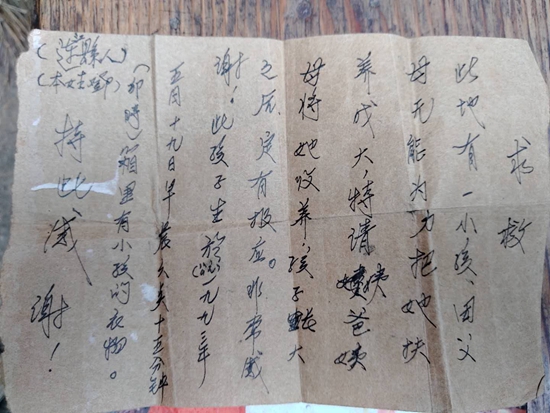 求救
此地有一小孩、因父
母无能为力把她扶
养成大,特请姨爸姨
母将她收养,孩子长大
之后定有报应。非常感
谢!此孩子生于(阴)一九九三年
五月十九日早晨六点十五分钟
(即时)箱里有小孩的衣物。
持此感谢!
(本姓邓)
(溆县人)